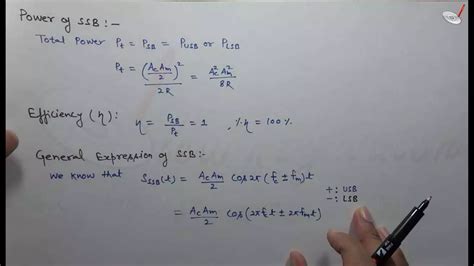 Power of SSB :-
Total Power Pt = PSB = PUSB or PLSB
Pt = (AcAm/2)²/2R = Ac²Am²/8R
Efficiency (η) :
η = PSB/Pt = 1 , %η = 100 %
General Expression of SSB :-
We know that SSSB(t) = AcAm/2 cos2π(fc ± fm)t
+ : USB
- : LSB
= AcAm/2 cos(2πfct ± 2πfmt)